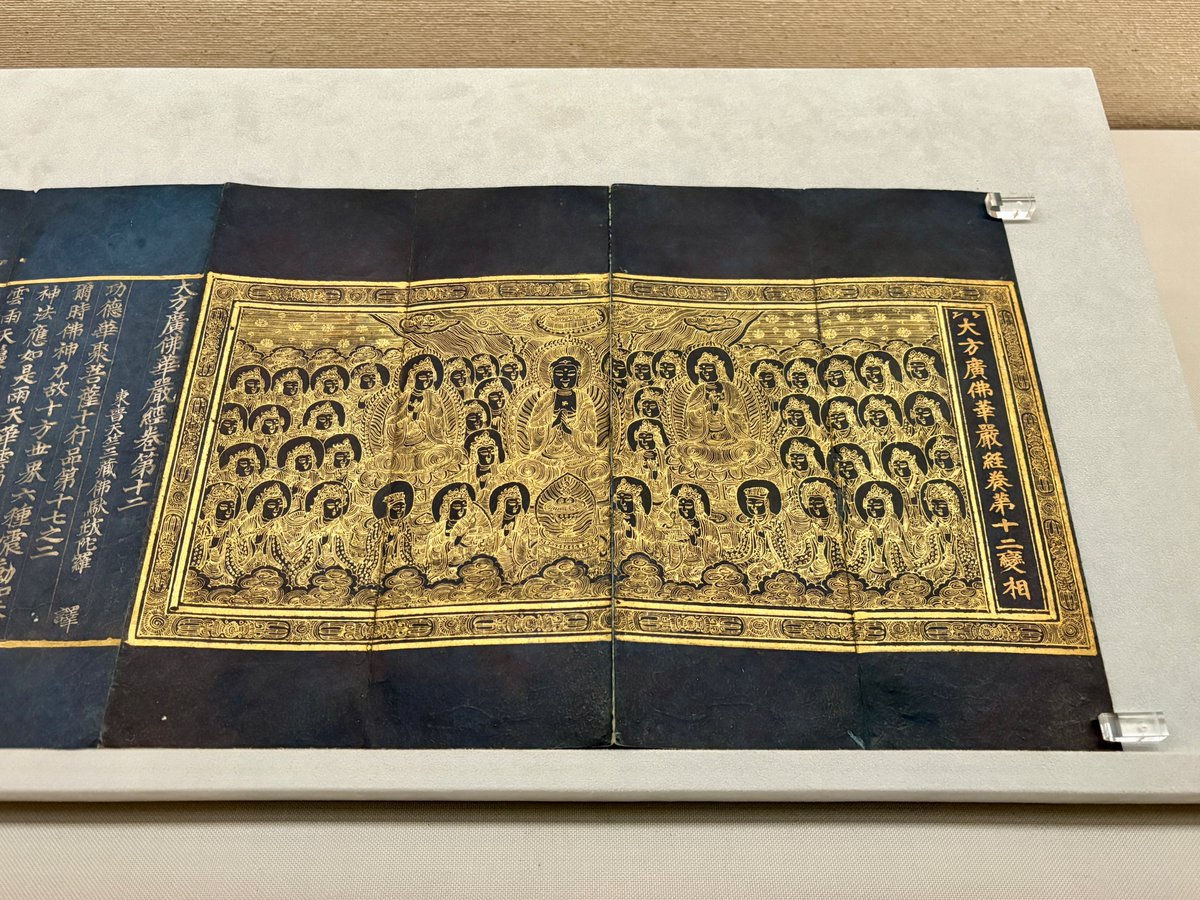 大方廣佛華嚴經卷第十二變相
大方廣佛華嚴經卷第十二
東晉天竺三藏佛馱跋陀羅 譯
功德華聚菩薩十行品第十七之二
爾時佛神力故十方世界六種震動
神法應如是雨天華雲
雲雨天